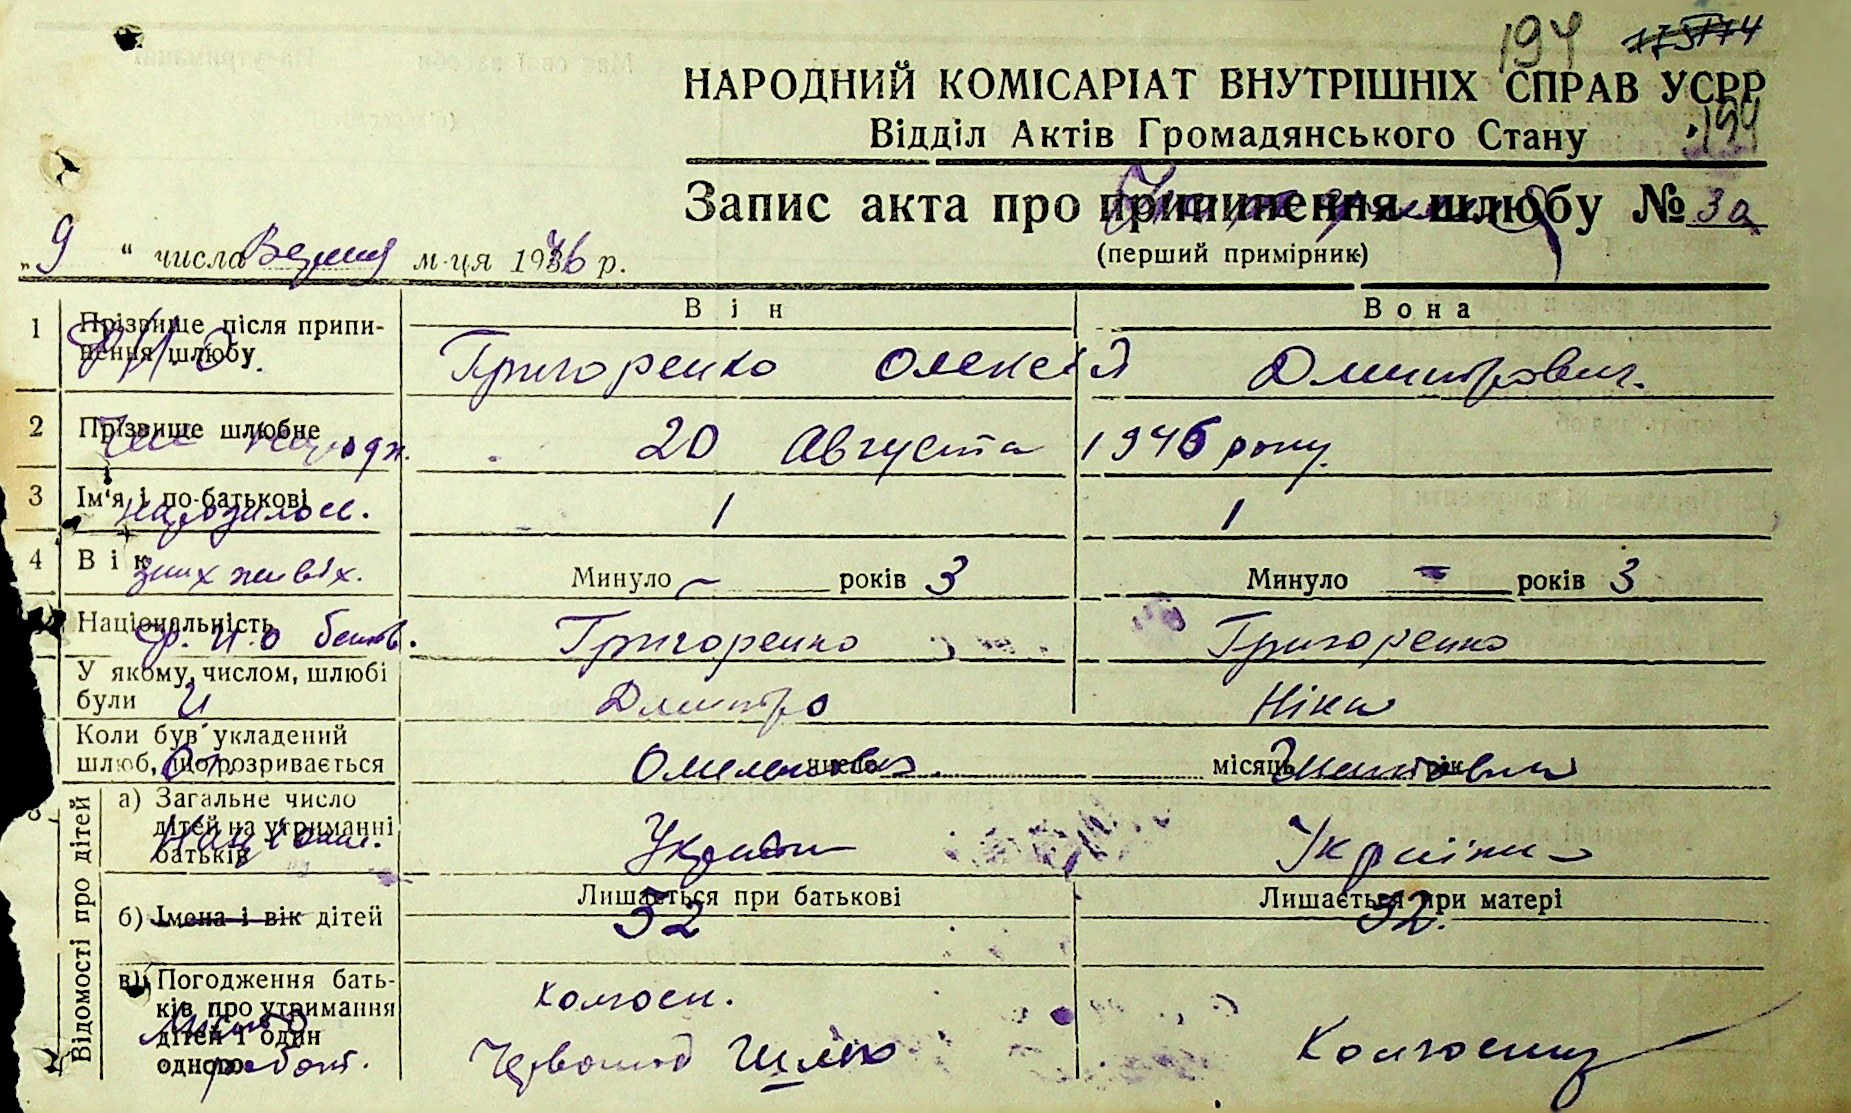 194 175174
НАРОДНИЙ КОМІСАРІАТ ВНУТРІШНІХ СПРАВ УСРР
Відділ Актів Громадянського Стану 194
Запис акта про припинення шлюбу № 3а
(перший примірник)
„9“ числа м-ця 1946 р.
Він Вона
1 Прізвище після припинення шлюбу Григоренко Олексій Дмитрович.
2 Прізвище шлюбне
Час народж. 20 Августа 1946 року.
3 Ім'я і по-батькові
народилось. 1 1
4 Вік
з них живіх. Минуло – років 3 Минуло – років 3
Національність
Ф. И. О батьк. Григоренко Григоренко
У якому, числом, шлюбі були
И Дмитро Ніна
Коли був укладений шлюб, що розривається число місяць рік
От.
Відомості про дітей
а) Загальне число дітей на утриманні батьків
Націонал. Україн
Лишається при батькові Лишається при матері
б) Імена і вік дітей 32 32.
в) Погодження батьків про утримання дітей і один одного
Место работ. колгосп.
Колгоспниця